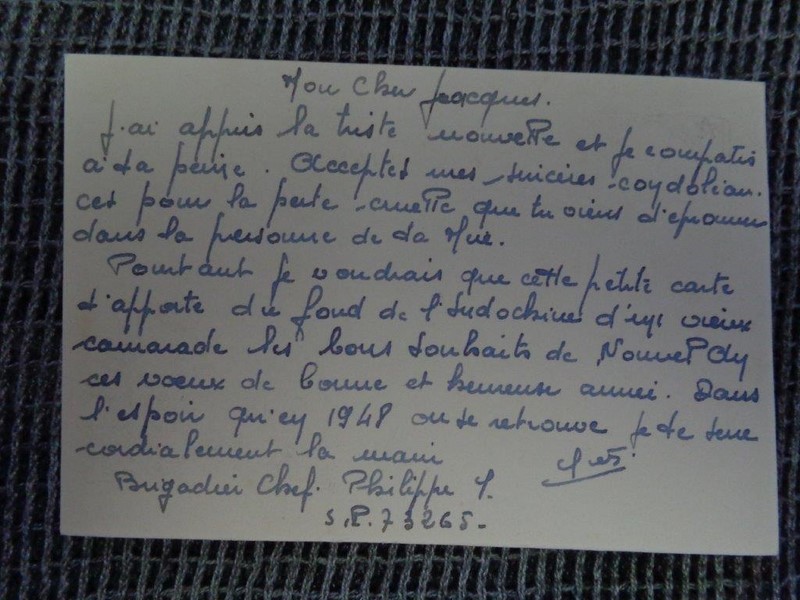 Mon Cher Jacques.
J'ai appris la triste nouvelle et je compatis
à ta peine. Acceptes mes sincères condoléan-
ces pour la perte cruelle que tu viens d'éprouver
dans la personne de ta Mère.
Pourtant je voudrais que cette petite carte
t'apporte du fond de l'Indochine d'un vieux
camarade les bons souhaits de Nouvel An
ces voeux de bonne et heureuse année. Dans
l'espoir qu'en 1948 on se retrouve je te serre
cordialement la main
Brigadier Chef. Philippe
S.P. 73265.-